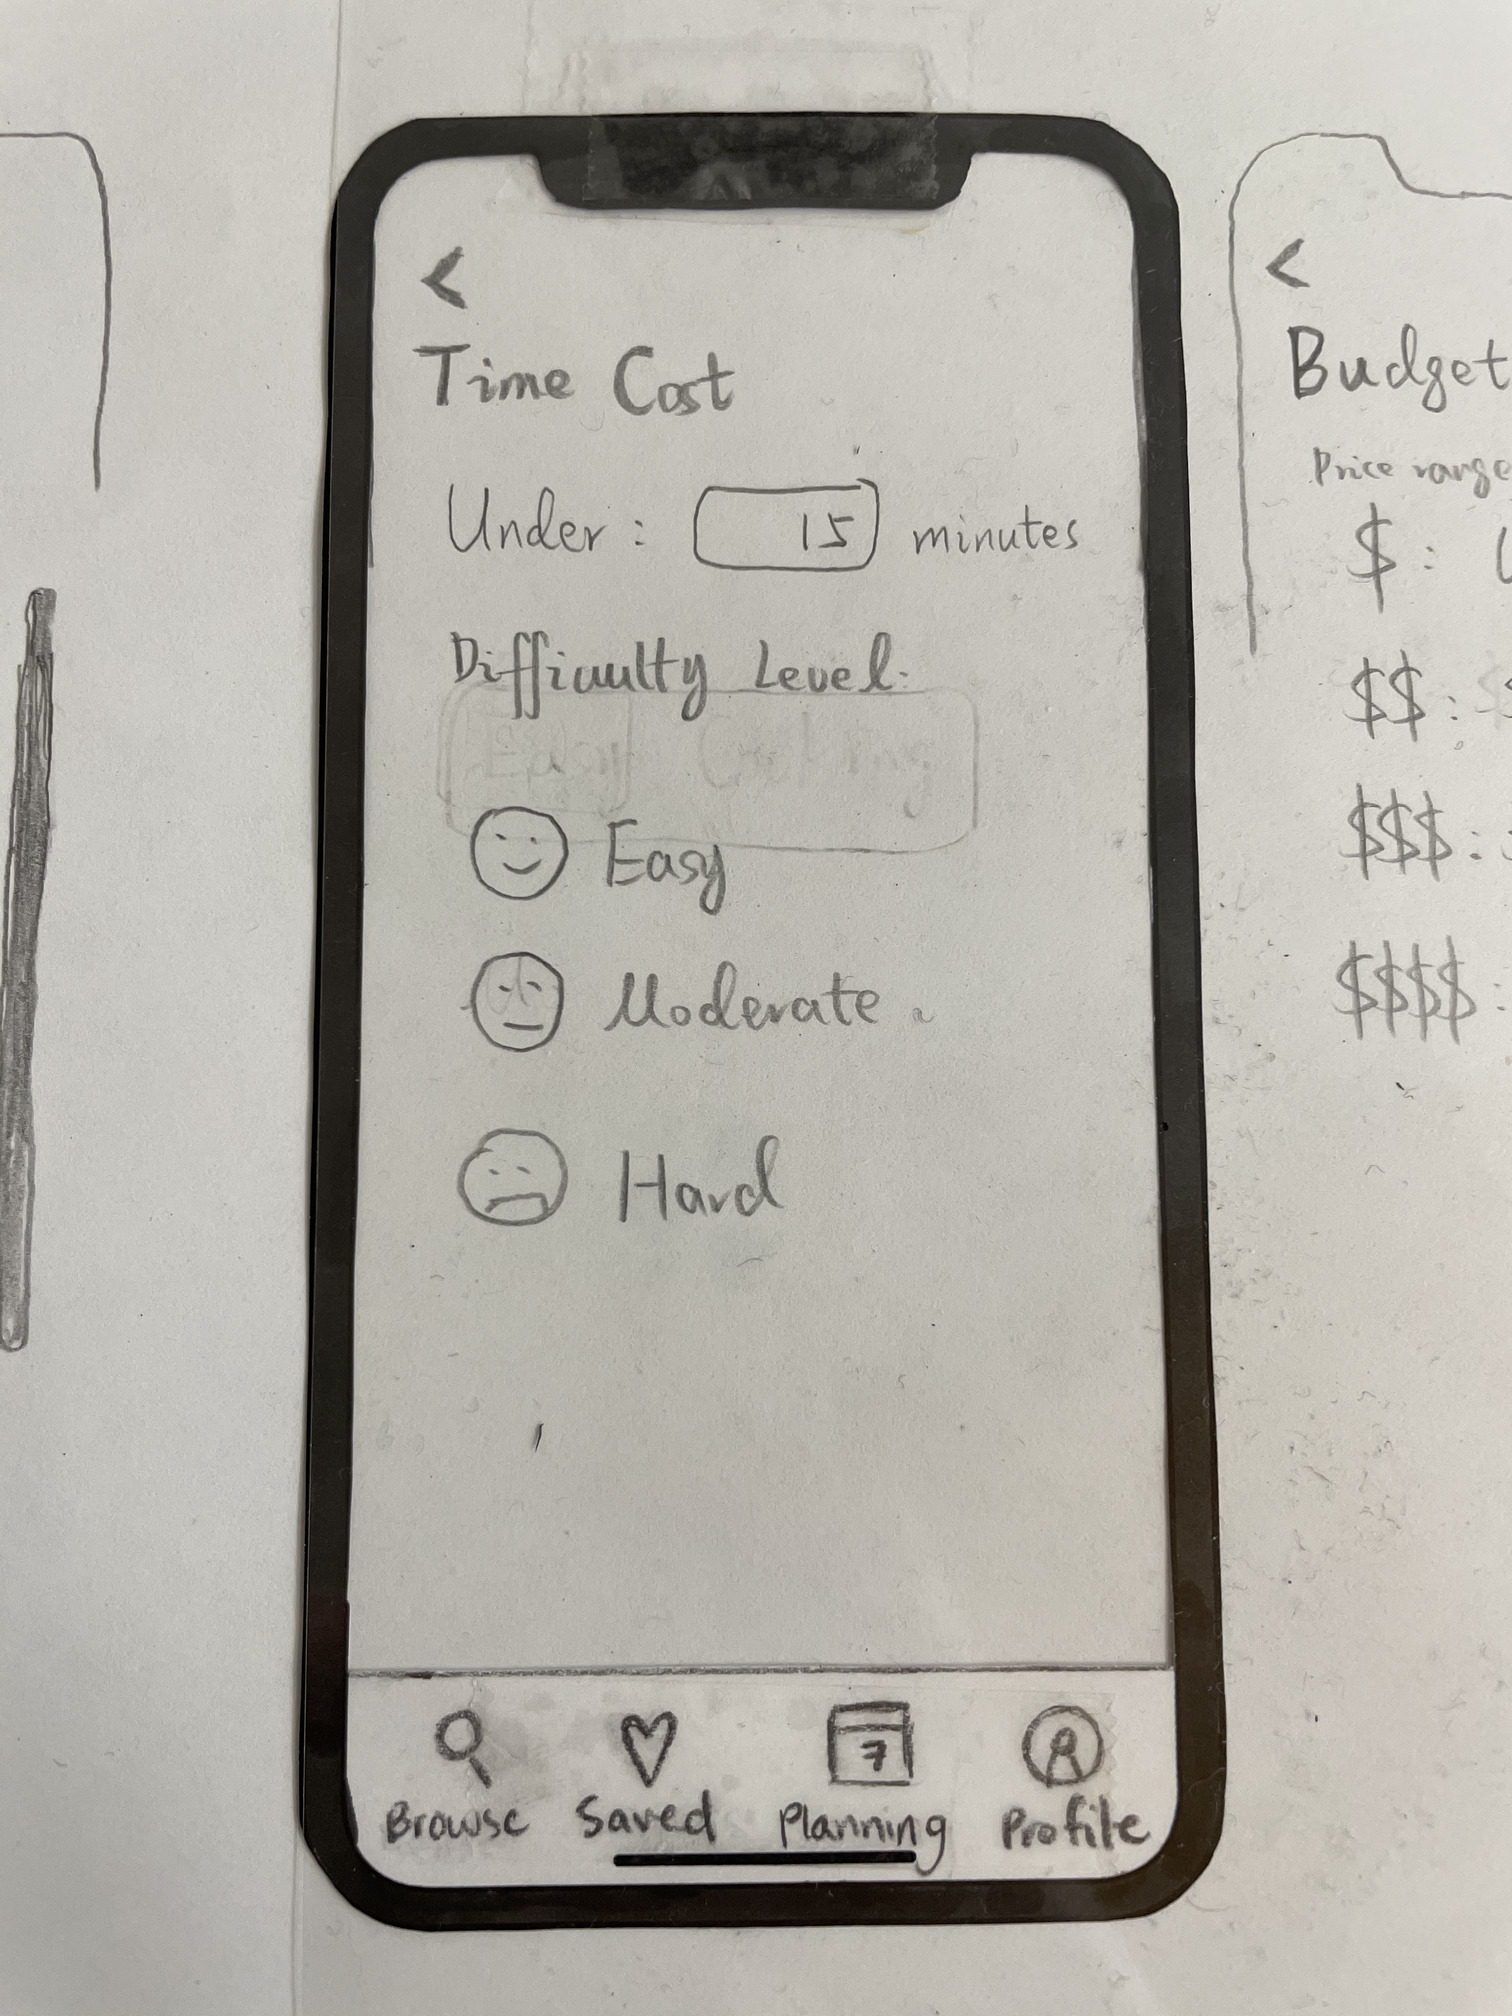 <
Time Cost
Under: 15 minutes
Difficulty Level:
Easy
Moderate
Hard
7
Browse Saved Planning Profile
<
Budget
Price range
$:
$$:
$$$:
$$$$: